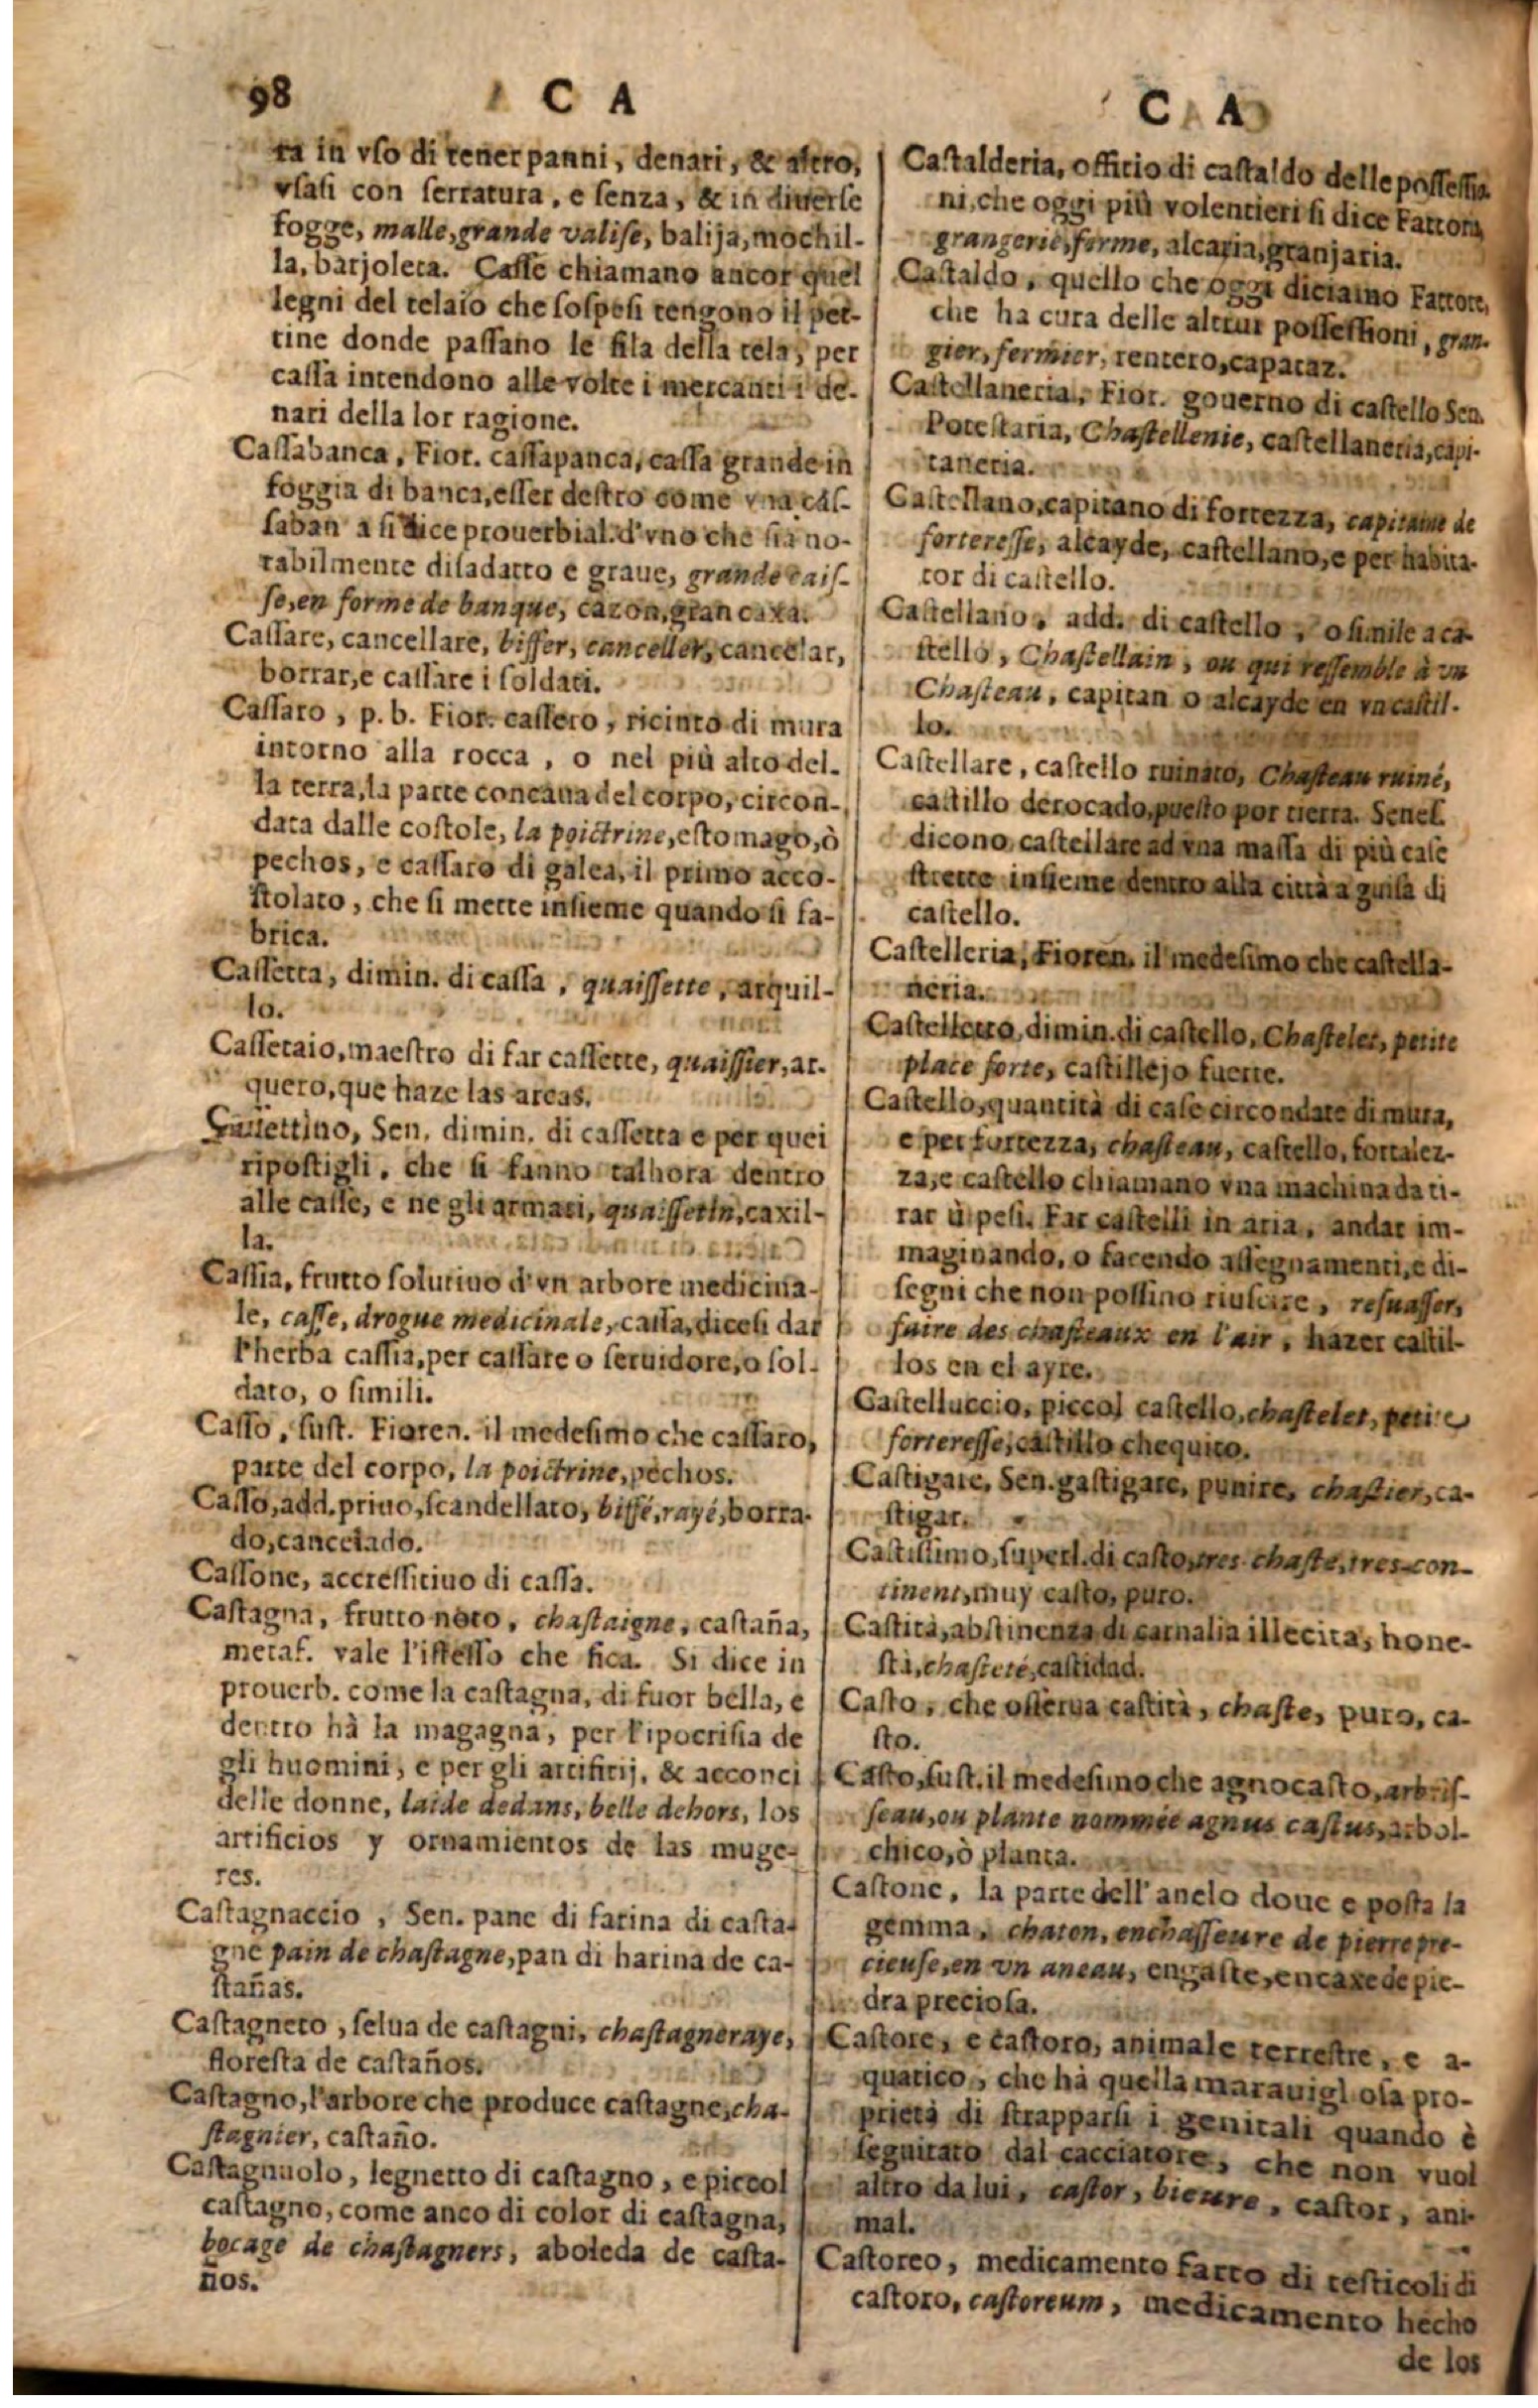 98 C A
ta in vſo di tener panni, denari, & altro,
vſaſi con ſerratura, e ſenza, & in diuerſe
fogge, malle, grande valiſe, balija, mochil-
la, barjoleta. Caſſe chiamano ancor quei
legni del telaio che ſoſpeſi tengono il pet-
tine donde paſſano le fila della tela, per
caſſa intendono alle volte i mercanti i de-
nari della lor ragione.
Caſſabanca, Fior. caſſapanca, caſſa grande in
foggia di banca, eſſer deſtro come vna caſ-
ſaban a ſi dice prouerbial. d'vno che ſia no-
tabilmente diſadatto e graue, grande caiſ-
ſe, en forme de banque, caxon, gran caxa.
Caſſare, cancellare, biffer, canceller, cancelar,
borrar, e caſſare i ſoldati.
Caſſaro, p. b. Fior. caſſero, ricinto di mura
intorno alla rocca, o nel più alto del-
la terra, la parte concaua del corpo, circon-
data dalle coſtole, la poictrine, eſtomago, ò
pechos, e caſſaro di galea, il primo acco-
ſtolato, che ſi mette inſieme quando ſi fa-
brica.
Caſſetta, dimin. di caſſa, quaiſſette, arquil-
lo.
Caſſetaio, maeſtro di far caſſette, quaiſſier, ar-
quero, que haze las arcas.
Caſſettino, Sen. dimin. di caſſetta e per quei
ripoſtigli, che ſi fanno talhora dentro
alle caſſe, e ne gli armari, quaiſſetin, caxil-
la.
Caſſia, frutto ſolutiuo d'vn arbore medicina-
le, caſſe, drogue medicinale, caſſa, diceſi dar
l'herba caſſia, per caſſare o ſeruidore, o ſol-
dato, o ſimili.
Caſſo, ſuſt. Fioren. il medeſimo che caſſaro,
parte del corpo, la poictrine, pechos.
Caſſo, add. priuo, ſcandellato, biffé, rayé, borra-
do, cancelado.
Caſſone, accreſſitiuo di caſſa.
Caſtagna, frutto noto, chaſtaigne, caſtaña,
metaf. vale l'iſteſſo che fica. Si dice in
prouerb. come la caſtagna, di fuor bella, e
dentro hà la magagna, per l'ipocriſia de
gli huomini, e per gli artifitij, & acconci
delle donne, laide dedans, belle dehors, los
artificios y ornamientos de las muge-
res.
Caſtagnaccio, Sen. pane di farina di caſta-
gne pain de chaſtagne, pan di harina de ca-
ſtañas.
Caſtagneto, ſelua de caſtagni, chaſtagneraye,
floreſta de caſtaños.
Caſtagno, l'arbore che produce caſtagne, cha-
ſtagnier, caſtaño.
Caſtagnuolo, legnetto di caſtagno, e piccol
caſtagno, come anco di color di caſtagna,
bocage de chaſtagners, aboleda de caſta-
ños.
C A
Caſtalderia, offitio di caſtaldo delle poſſeſſio-
ni, che oggi più volentieri ſi dice Fattoria,
grangerie, ferme, alcaria, granjaria.
Caſtaldo, quello che oggi diciamo Fattore,
che ha cura delle altrui poſſeſſioni, gran-
gier, fermier, rentero, capataz.
Caſtellaneria, Fior. gouerno di caſtello Sen.
Poteſtaria, Chaſtellenie, caſtellaneria, capi-
taneria.
Caſtellano, capitano di fortezza, capitaine de
fortereſſe, alcayde, caſtellano, e per habita-
tor di caſtello.
Caſtellano, add. di caſtello, o ſimile a ca-
ſtello, Chaſtellain, ou qui reſſemble à vn
Chaſteau, capitan o alcayde en vn caſtil-
lo.
Caſtellare, caſtello ruinato, Chaſteau ruiné,
caſtillo derocado, pueſto por tierra. Seneſ.
dicono caſtellare ad vna maſſa di più caſe
ſtrette inſieme dentro alla città a guiſa di
caſtello.
Caſtelleria, Fioren. il medeſimo che caſtella-
neria.
Caſtelletto, dimin. di caſtello, Chaſtelet, petite
place forte, caſtillejo fuerte.
Caſtello, quantità di caſe circondate di mura,
e per fortezza, chaſteau, caſtello, fortalez-
za, e caſtello chiamano vna machina da ti-
rar ù peſi. Far caſtelli in aria, andar im-
maginando, o facendo aſſegnamenti, e di-
ſegni che non poſſino riuſcire, reſuaſſer,
faire des chaſteaux en l'air, hazer caſtil-
los en el ayre.
Caſtelluccio, piccol caſtello, chaſtelet, petite
fortereſſe, caſtillo chequito.
Caſtigare, Sen. gaſtigare, punire, chaſtier, ca-
ſtigar.
Caſtiſſimo, ſuperl. di caſto, tres chaſte, tres-con-
tinent, muy caſto, puro.
Caſtità, abſtinenza di carnalia illecita, hone-
ſtà, chaſteté, caſtidad.
Caſto, che oſſerua caſtità, chaſte, puro, ca-
ſto.
Caſto, ſuſt. il medeſimo che agnocaſto, arbriſ-
ſeau, ou plante nommée agnus caſtus, arbol-
chico, ò planta.
Caſtone, la parte dell'anelo doue e poſta la
gemma, chaton, enchaſſeure de pierre pre-
cieuſe, en vn aneau, engaſte, encaxe de pie-
dra precioſa.
Caſtore, e caſtoro, animale terreſtre, e a-
quatico, che hà quella marauiglioſa pro-
prietà di ſtrapparſi i genitali quando è
ſeguitato dal cacciatore, che non vuol
altro da lui, caſtor, bieure, caſtor, ani-
mal.
Caſtoreo, medicamento fatto di teſticoli di
caſtoro, caſtoreum, medicamento hecho
de los